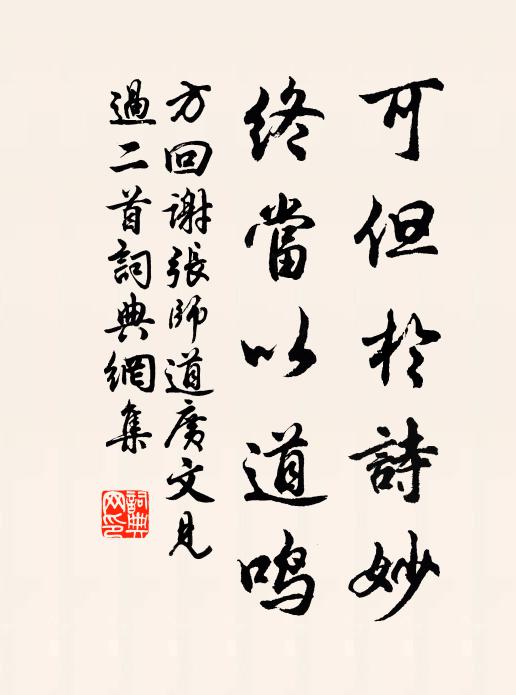 可但於詩妙
終當以道鳴
方回謝張師道廣文見
過二首詞典網集
詞典网印